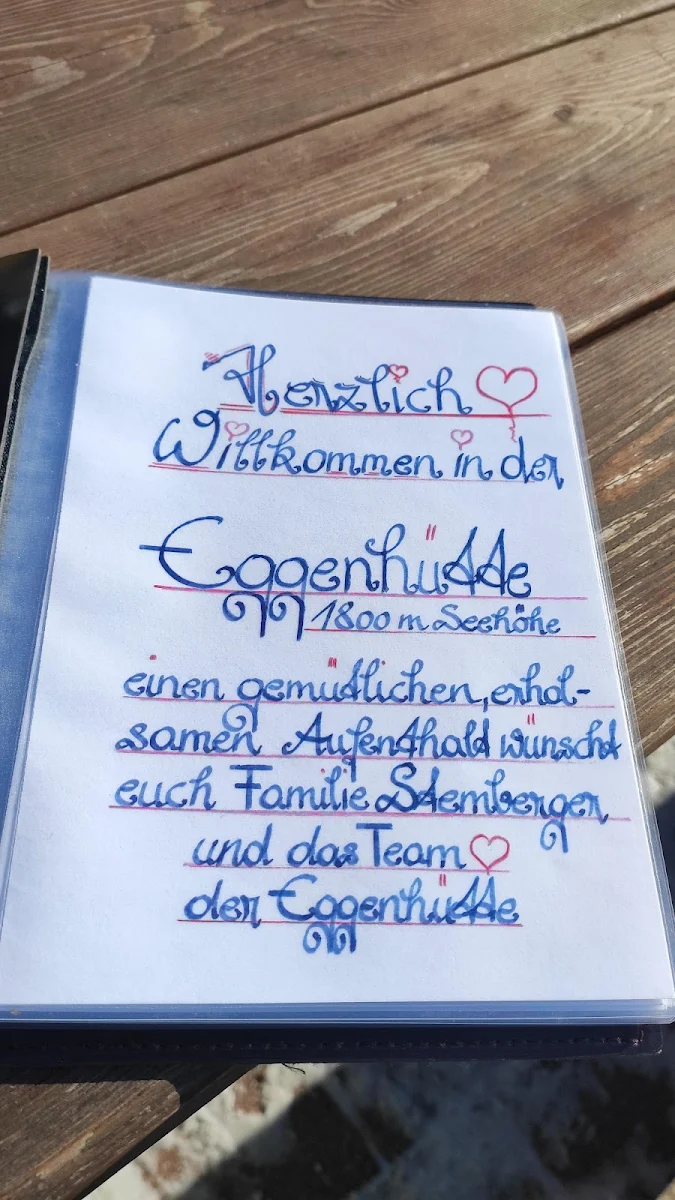 Herzlich
Willkommen in der
Eggenhütte
1800 m Seehöhe
einen gemütlichen, erhol-
samen Aufenthalt wünscht
euch Familie Stemberger
und das Team
der Eggenhütte